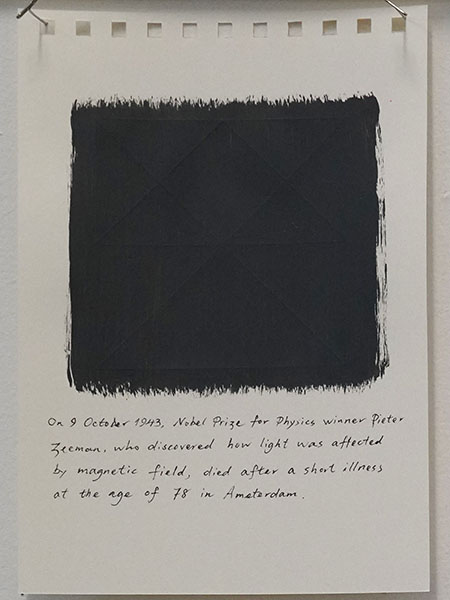 On 9 October 1943, Nobel Prize for Physics winner Pieter
Zeeman, who discovered how light was affected
by magnetic field, died after a short illness
at the age of 78 in Amsterdam.